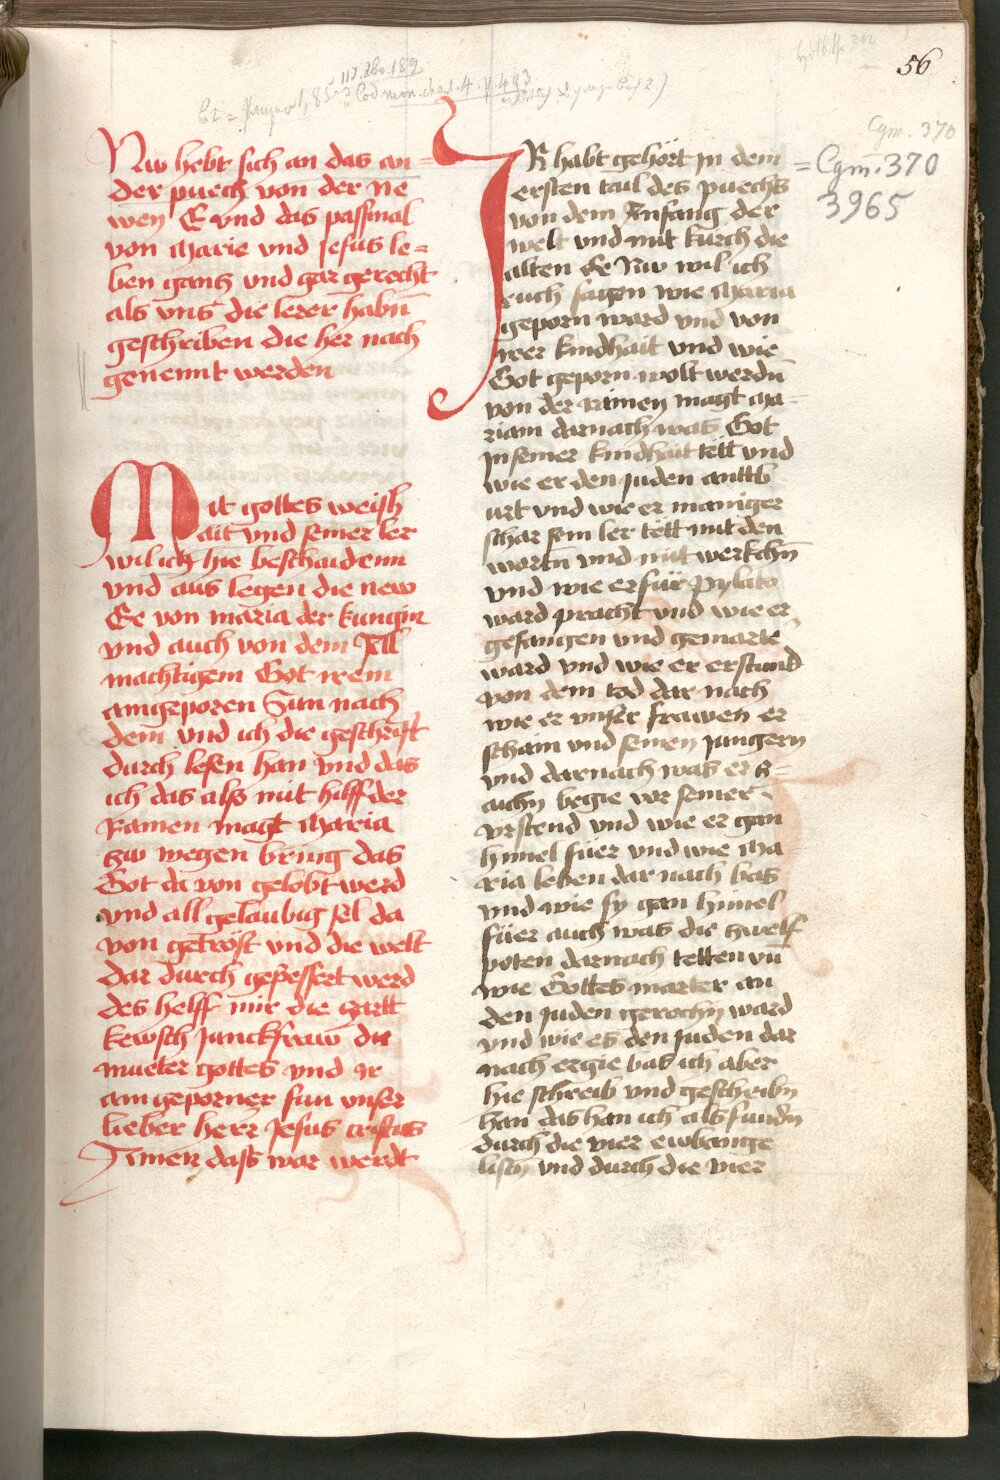 56
Cgm. 370
= Cgm. 370
3965
Nw hebt sich an das an=
der puech von der Ne
wen E vnd das passinal
von Marie vnd Jesus le=
ben gantz vnd gar gerecht
als vns die lerer habn̄
geschriben die her nach
genennt werden
Mit gottes weish
ait vnd seiner ler
wil ich hie beschaidenn
vnd aus legen die new
Ee von maria der kungin
vnd auch von dem All
machtigem Got irem
aingeporen Sun nach
dem vnd ich die geschrift
durch lesen han vnd das
ich das alss mit hilff der
Rainen magt Maria
zw wegen bring das
Got da von gelobt werd
vnd all gelaubig sel da
von getröst vnd die welt
dar durch gepessert werd
des helff mir die zartt
kewsch junckfraw die
mueter gottes vnd ir
aingeporner sun vnser
lieber herr Jesus cristus
Amen dass war werdt
IR habt gehört jn dem
ersten tail des puechs
von dem Anfang der
welt vnd mit kurch die
alten Ee Nw wil ich
euch sagen wie Maria
geporn ward vnd von
irer kindhait vnd wie
Got geporn wolt werdn̄
von der rainen magt Ma=
riam darnach was Got
jn seiner kindhait tett vnd
wie er den juden anttb
urt vnd wie er maniger
schar sein ler tett mit den
wortn̄ vnd mit werkchn̄
vnd wie er für pylato
ward pracht vnd wie er
gefangen vnd gemarte
ward vnd wie er erstund
von dem tod dar nach
wie er vnser frawen er
schain vnd seinen jungern
vnd darnach was er
begie vor seiner
vrstend vnd wie er gan
himel füer vnd wie Ma
ria leben dar nach was
vnd wie sy gan himel
füer auch was die zwelf
poten darnach tetten vn̄
wie Gottes marter an
den juden gerochn̄ ward
vnd wie es den juden dar
nach ergie was ich aber
hie schreib vnd geschribn
han das han ich als fundn
durch die vier ewbange
listn vnd durch die vier